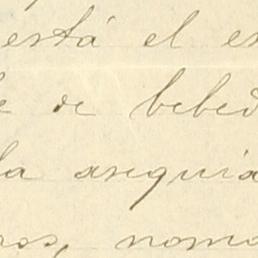 está el es
e de bebed
la asequia
ros, nomo